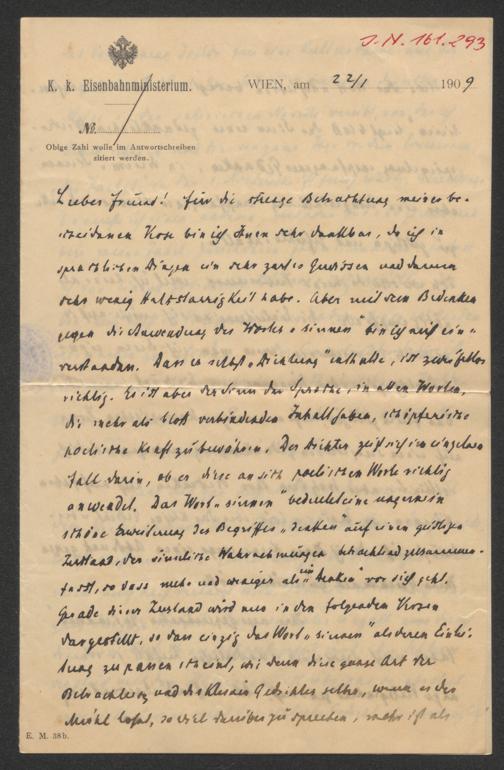 J.N. 161.293
K. k. Eisenbahnministerium.
WIEN, am 22/1 1909
No.
Obige Zahl wolle im Antwortschreiben
zitiert werden.
Lieber Freund! Für die strenge Betrachtung meiner be-
scheidenen Kose bin ich Ihnen sehr dankbar, da ich in
sprachlichen Dingen ein sehr zartes Gewissen und darum
sehr wenig Halsstarrigkeit habe. Aber mit dem Bedenken
gegen die Anwendung des Wortes „sinnen" bin ich nicht ein-
verstanden. Dass es selbst „Dichtung" enthalte, ist zweifellos
richtig. Es ist aber der Sinn der Sprache, in allen Worten,
die mehr als bloß verbindenden Inhalt haben, schöpferische
poetische Kraft zu bewähren. Der Dichter zeigt sich im einzelnen
Fall darin, ob er diese an sich poetischen Worte richtig
anwendet. Das Wort „sinnen" bedeutet eine ungemein
schöne Erweiterung des Begriffes „denken" auf einen geistigen
Zustand, der sinnliche Wahrnehmungen betrachtend zusammen-
fasst, so dass mehr und weniger als ein „Denken" vor sich geht.
Gerade dieser Zustand wird nun in den folgenden
dargestellt, so dass einzig das Wort „sinnen" als deren Einlei-
tung zu passen scheint, wie denn diese ganze Art der
Betrachtung und des kleinen Gedichtes selbst, wenn es der
Mühe lohnt, so viel darüber zu sprechen, mehr ist als
E. M. 38b.